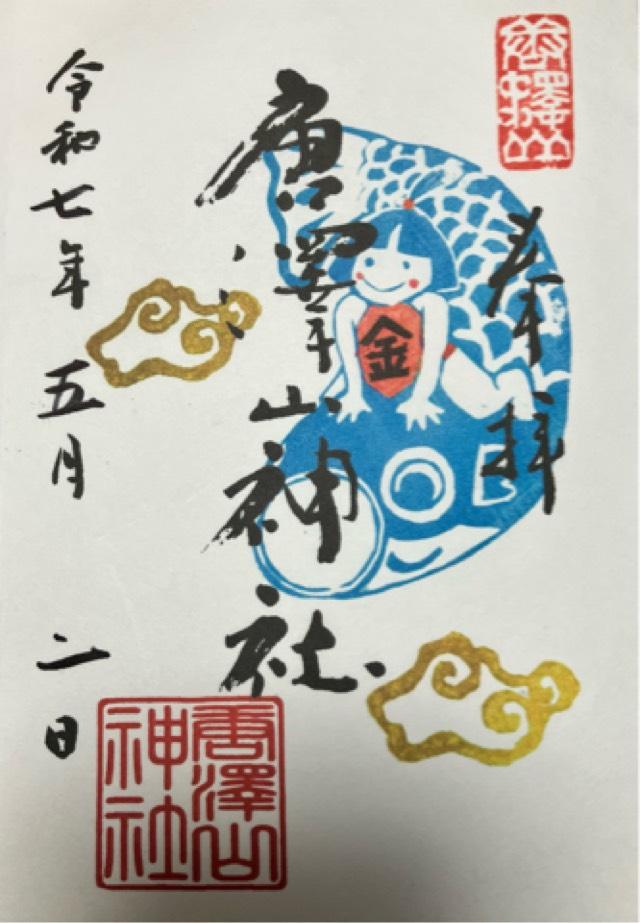 唐澤山
奉拝
金
唐澤山神社
令和七年五月二日
唐澤山
神社